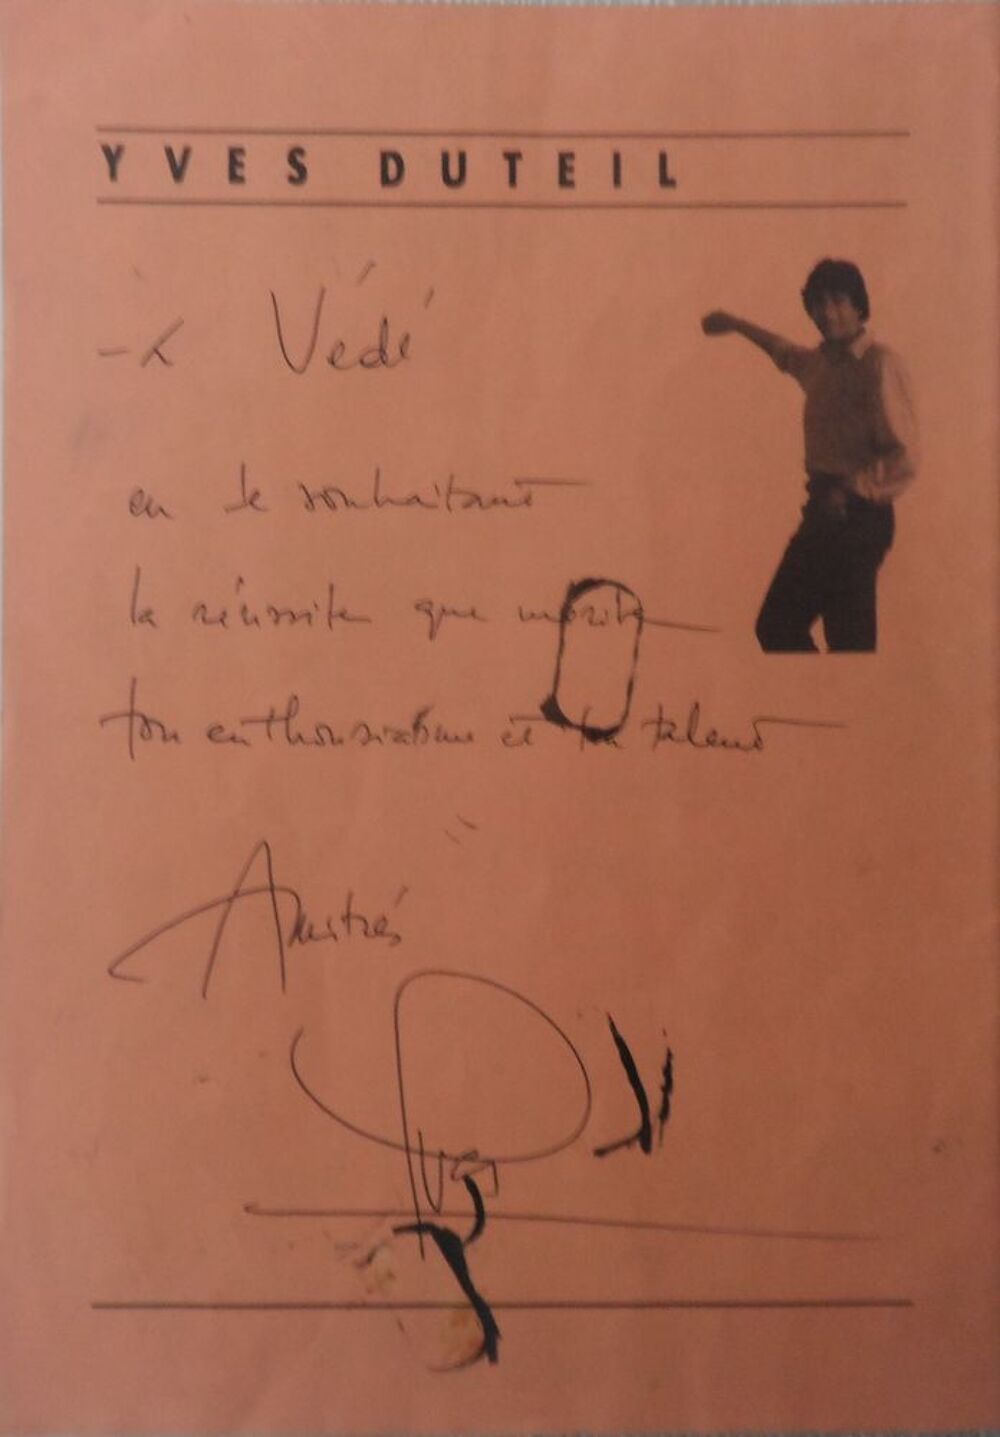 YVES DUTEIL
à Védé
en te souhaitant
la réussite que mérite
ton enthousiasme et ton talent
Amitiés
Yves